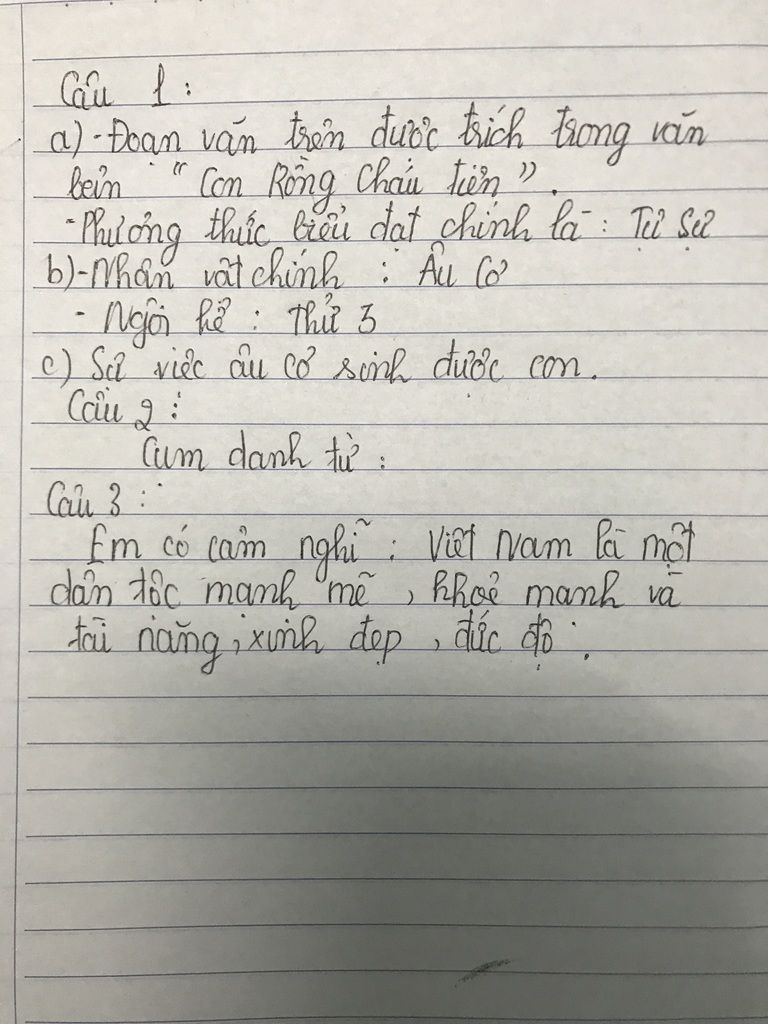 Câu 1 :
a) - Đoạn văn trên được trích trong văn
bản " Con Rồng Cháu tiên " .
- Phương thức biểu đạt chính là : Tự sự
b) - Nhân vật chính : Âu Cơ
- Ngôi kể : Thứ 3
c) Sự việc âu cơ sinh được con .
Câu 2 :
Cụm danh từ :
Câu 3 :
Em có cảm nghĩ : Việt Nam là một
dân tộc mạnh mẽ , khoẻ mạnh và
tài năng , xinh đẹp , đức độ .